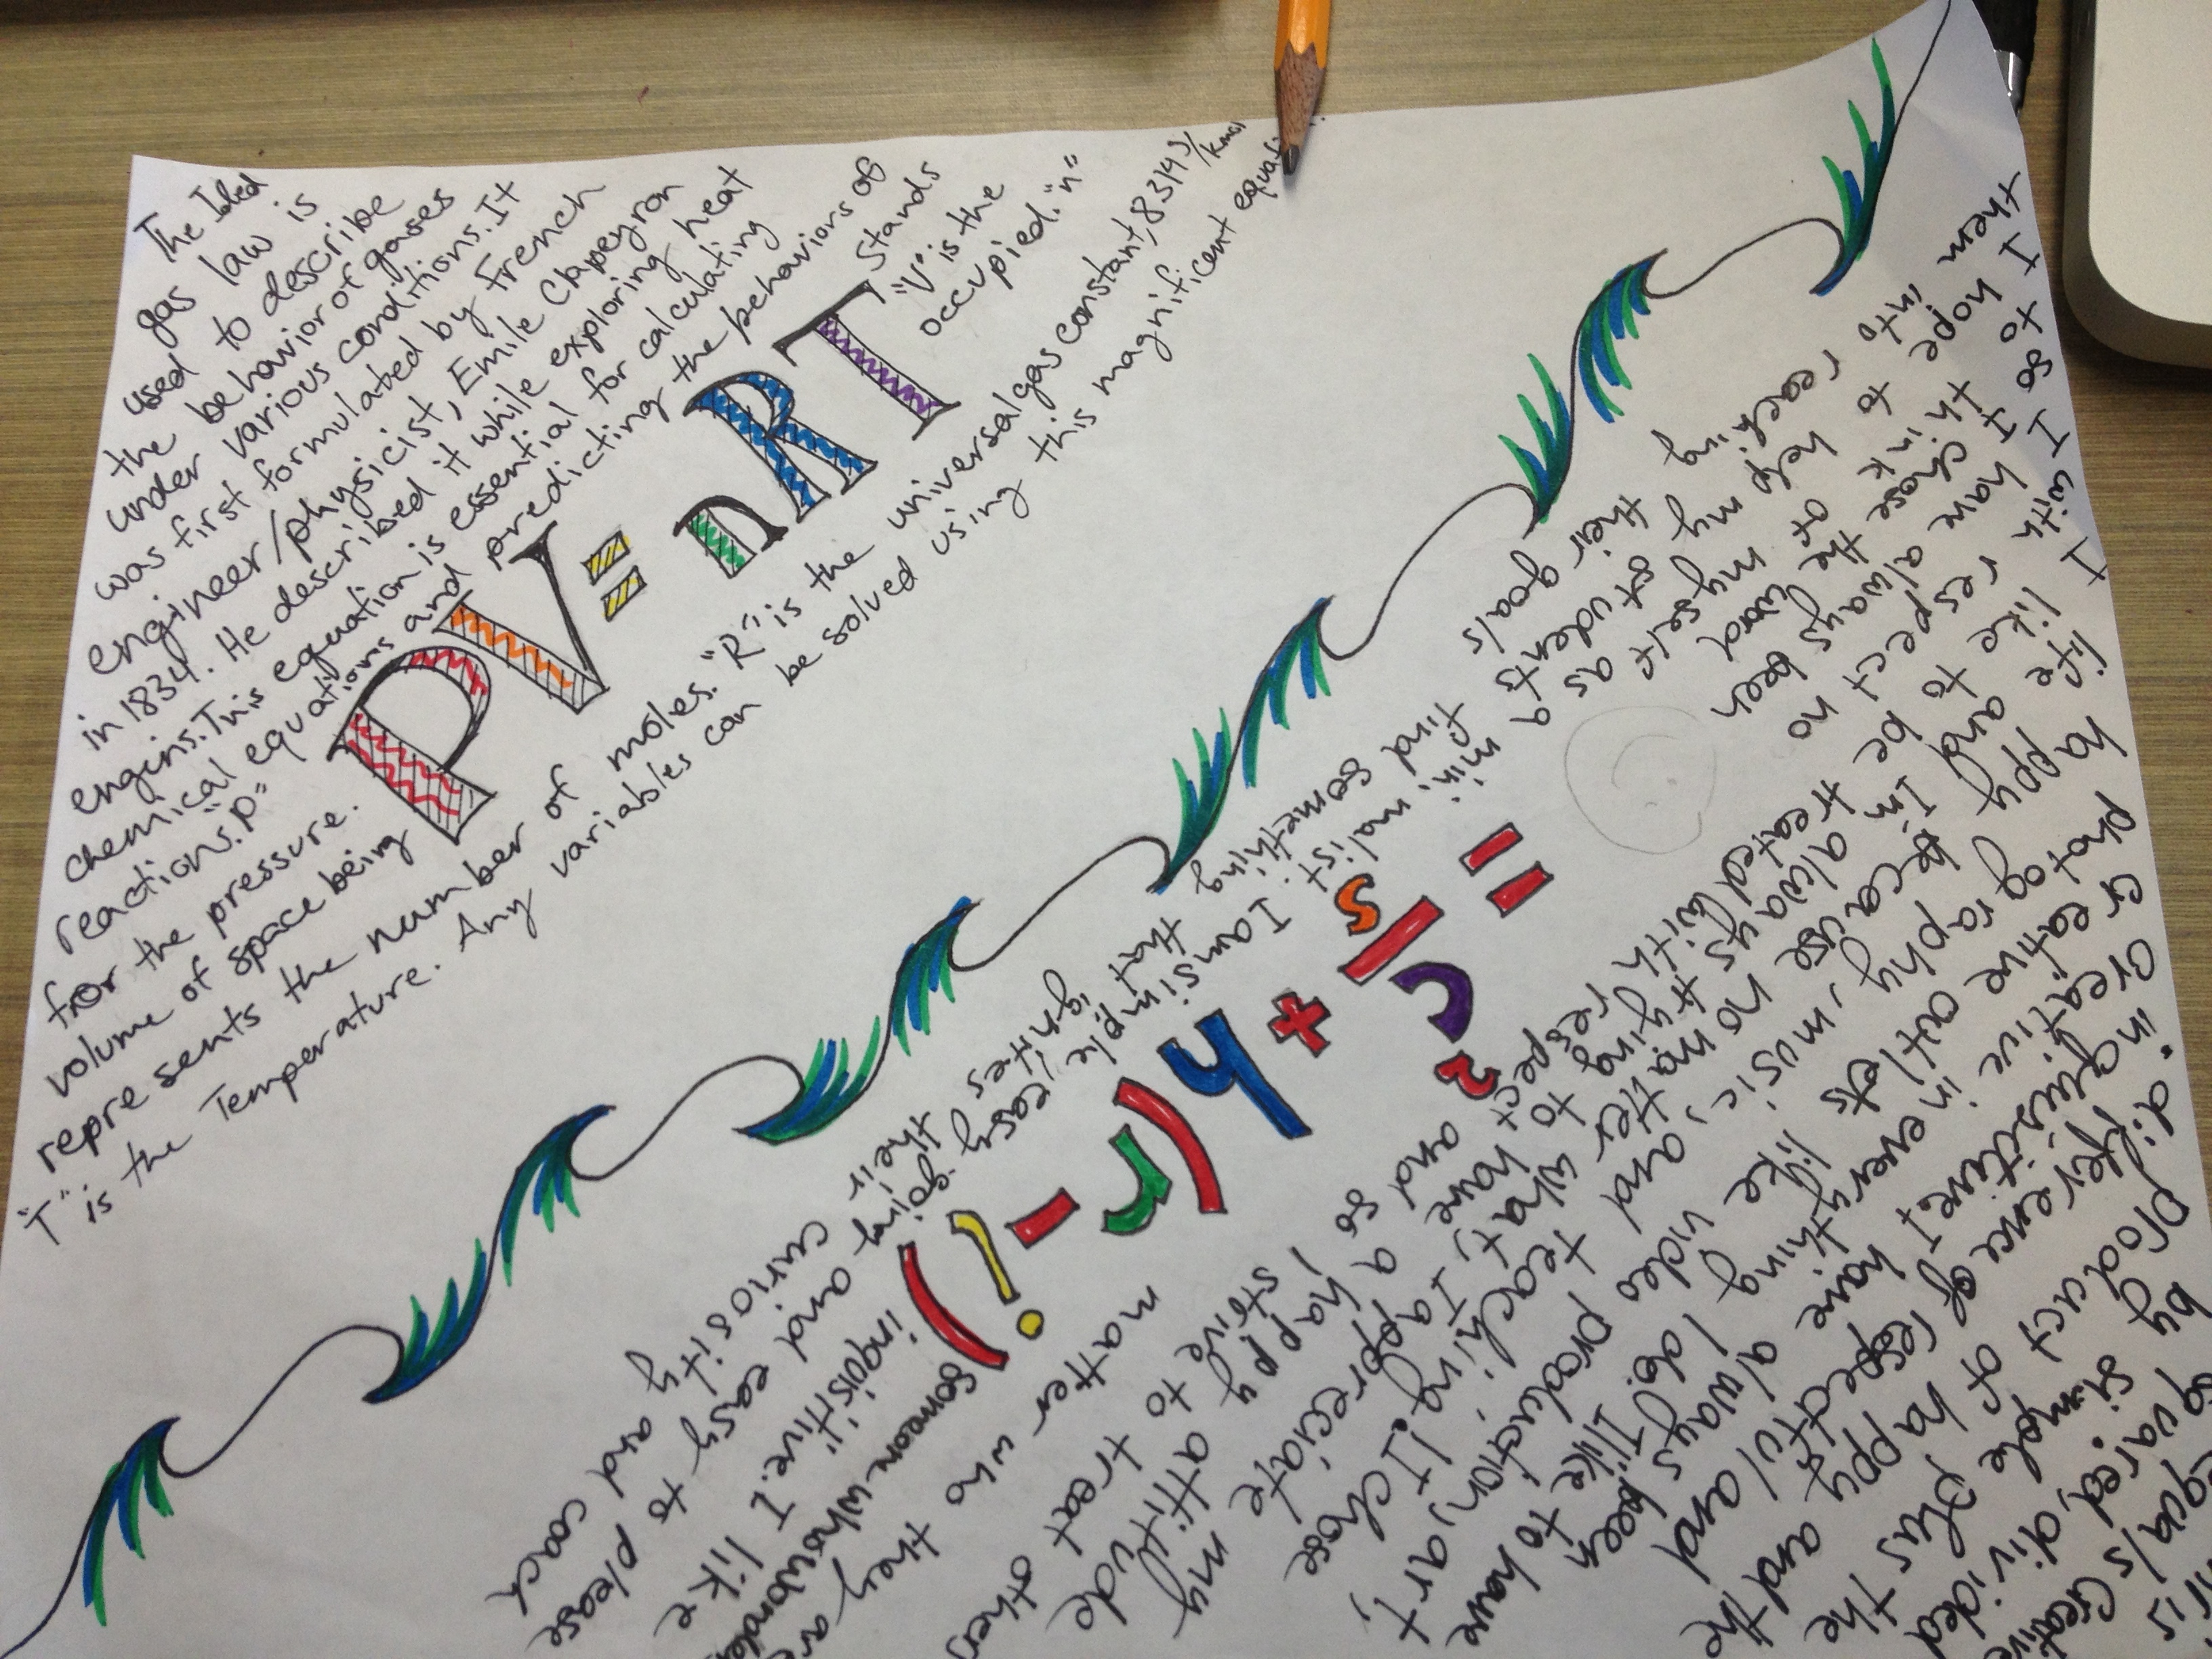 The Ideal
gas law is
used to describe
the behavior of gases
under various conditions. It
was first formulated by French
engineer/physicist, Emile Clapeyron
in 1834. He described it while exploring heat
engins. This equation is essential for calculating
chemical equations and predicting the behaviors of
reactions. "P" Stands
for the pressure. "V" is the
volume of space being occupied. "n"
represents the number of moles. "R" is the universal gas constant, 8314 J/kmol
"T" is the Temperature. Any variables can be solved using this magnificent
PV=nRT
is
equals creative
squared, divided
by simple plus the
product of happy and the
difference of respectful and
inquisitive. I have always been
creative in everything I do. I like to have
creative outlets like video production, art,
photography, music, and teaching. I chose
happy because no matter what, I appreciate my
life and I'm always trying to have a happy attitude
I like to be treated with respect and so I strive to treat others
with respect no matter who they
I have always been
someone who wonders
so I chose the word inquisitive. I like
to think of myself as a minimalist. I am simple/easy going and easy to please
I hope to help my students find something that ignites their curiosity and coach
them into reaching their goals
= s/c² + h(r-i)